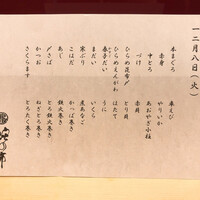 十二月八日(火)
本まぐろ
赤身
中とろ
べけ
ひらめ昆布〆
ひらめえんがわ
春子だい
まだい
寒ぶり
こはだ
あじ
〆さば
かつお
さくらます
車えび
やりいか
あおやぎ小柱
赤貝
とり貝
ほたて
うに
いくら
煮あなご
かっぱ巻き
鉄火巻き
とろ鉄火巻き
ねぎとろ巻き
とろたく巻き